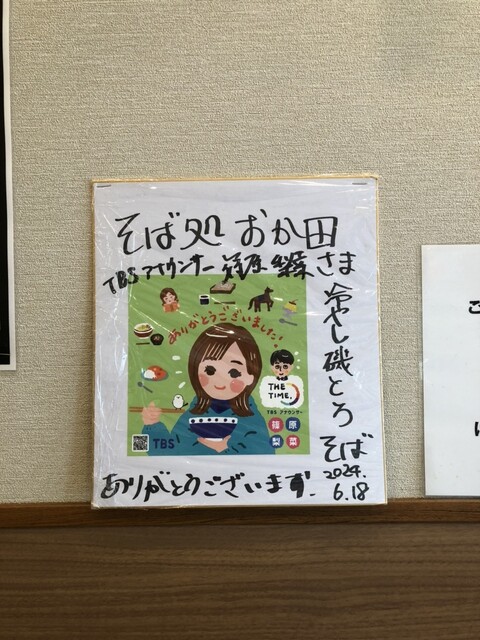 そば処 おか田
さま
TBS アナウンサー 篠原 梨菜
冷やし磯とろ
そば
ありがとうございました!
THE
TIME,
TBS アナウンサー
篠原
梨菜
TBS
ありがとうございます.
2024.
6.18